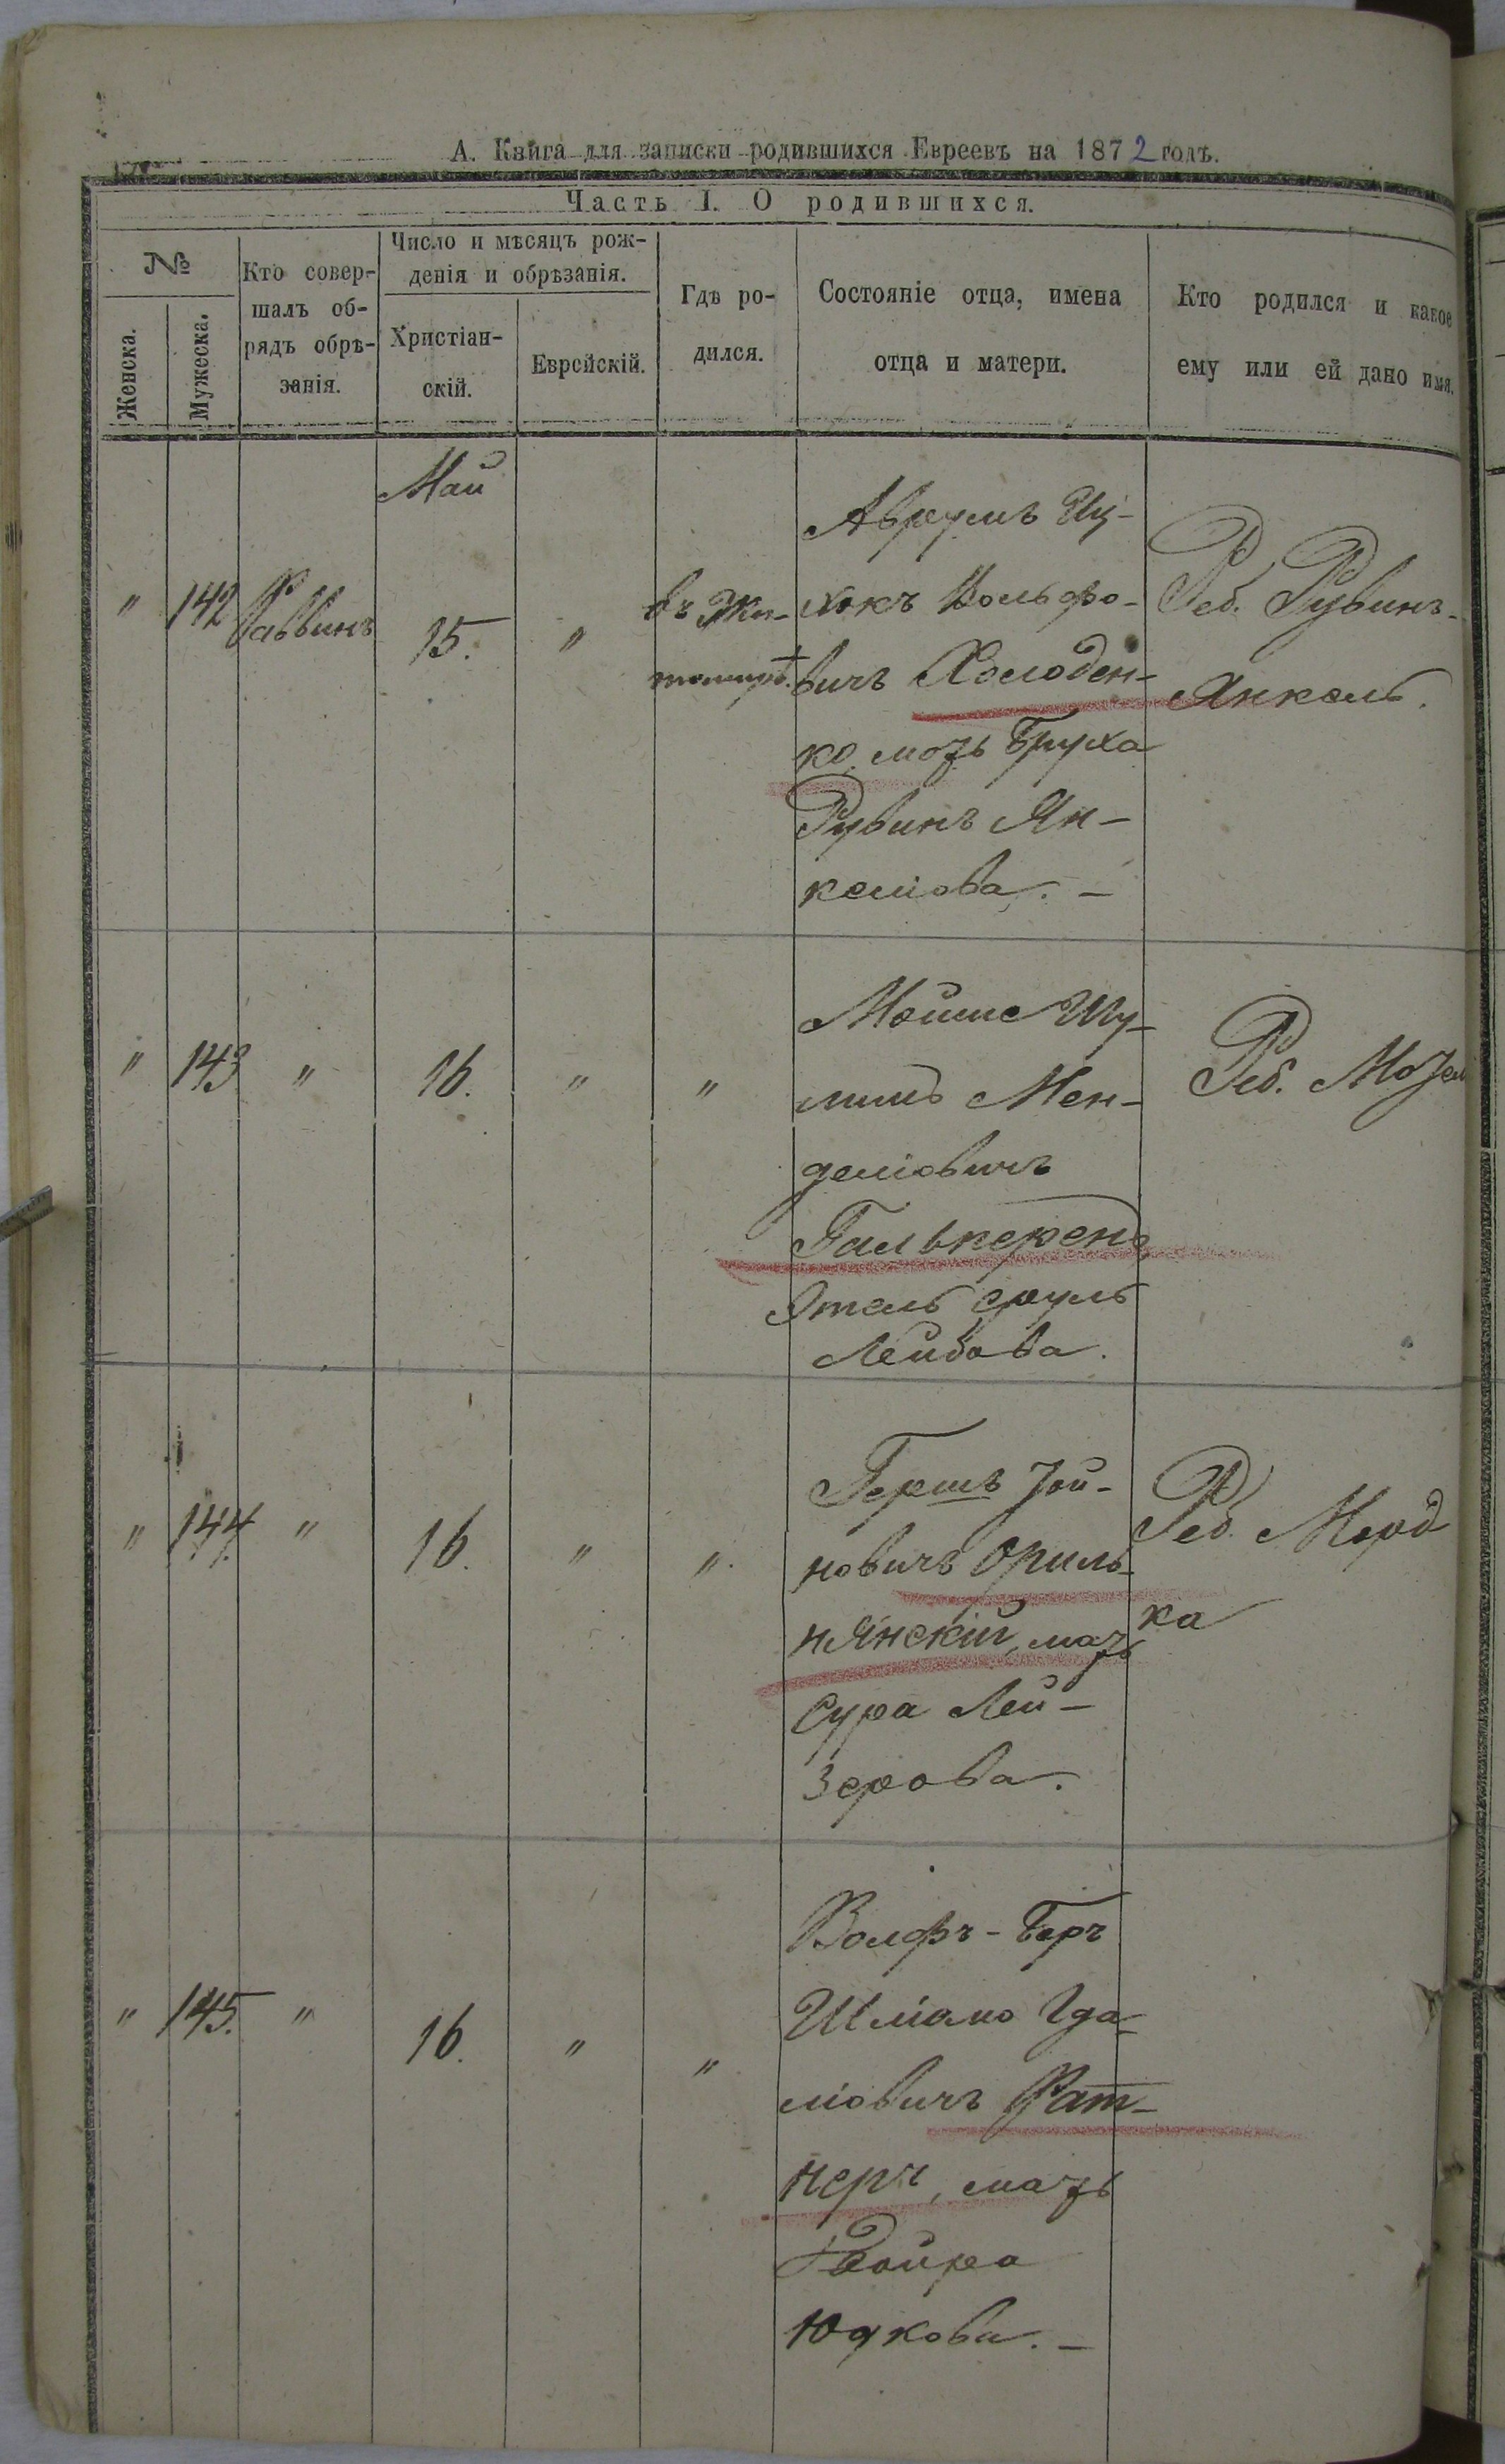 А. Книга для записки родившихся Евреевъ на 1872 годъ.
Часть I. О родившихся.
№
Женска.
Мужеска.
Кто совер-
шалъ об-
рядъ обрѣ-
занія.
Число и мѣсяцъ рож-
денія и обрѣзанія.
Христіан-
скій.
Еврейскій.
Гдѣ ро-
дился.
Состояніе отца, имена
отца и матери.
Кто родился и какое
ему или ей дано имя.
Май
" 142 Раввинъ 15. "
въ Жи-
томирѣ.
Аврумъ Иц-
хокъ Вольфо-
вичъ Холоден-
ко, мать Бруха
Рувинъ Ян-
келiова. -
Реб. Рувинъ-
Янкель.
" 143 " 16. " "
Мойше Шу-
лимъ Мен-
делiовичъ
Гальперенъ,
Этель Сруль
Лейбова.
Реб.
" 144 " 16. " "
Гершъ Іой-
новичъ Ориль-
нянскій, мать
Сура Лей-
зерова.
Реб. Морд
ка
" 145. " 16. " "
Волфъ-Беръ
Шліомо Гда-
ліовичъ Рат-
неръ, мать
Двойра
Юдкова. -